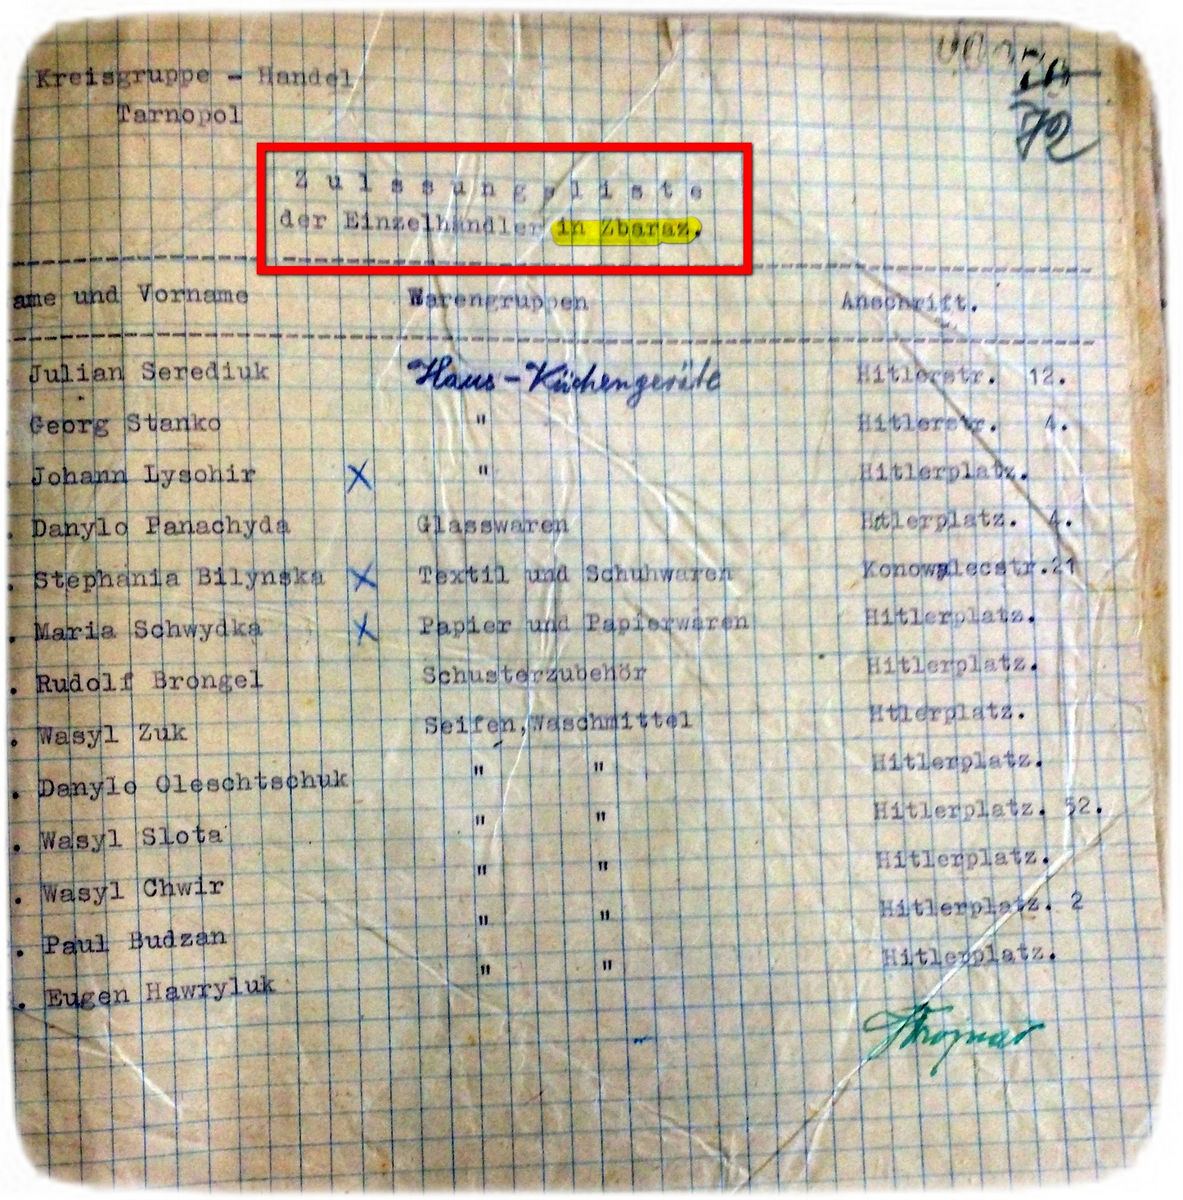 72
Kreisgruppe - Handel
Tarnopol
Zulssungsliste
der Einzelhändler in Zbaraz.
ame und Vorname Warengruppen Anschrift.
Julian Serediuk Haus-Küchengeräte Hitlerstr. 12.
Georg Stanko " Hitlerstr. 4.
. Johann Lysohir X " Hitlerplatz.
. Danylo Panachyda Glasswaren Hitlerplatz. 4.
. Stephania Bilynska X Textil und Schuhwaren Konowalecstr.21
. Maria Schwydka X Papier und Papierwaren Hitlerplatz.
. Rudolf Brongel Schusterzubehör Hitlerplatz.
. Wasyl Zuk Seifen,Waschmittel Htlerplatz.
. Danylo Oleschtschuk " " Hitlerplatz.
. Wasyl Slota " " Hitlerplatz. 52.
. Wasyl Chwir " " Hitlerplatz.
. Paul Budzan " " Hitlerplatz. 2
. Eugen Hawryluk " " Hitlerplatz.